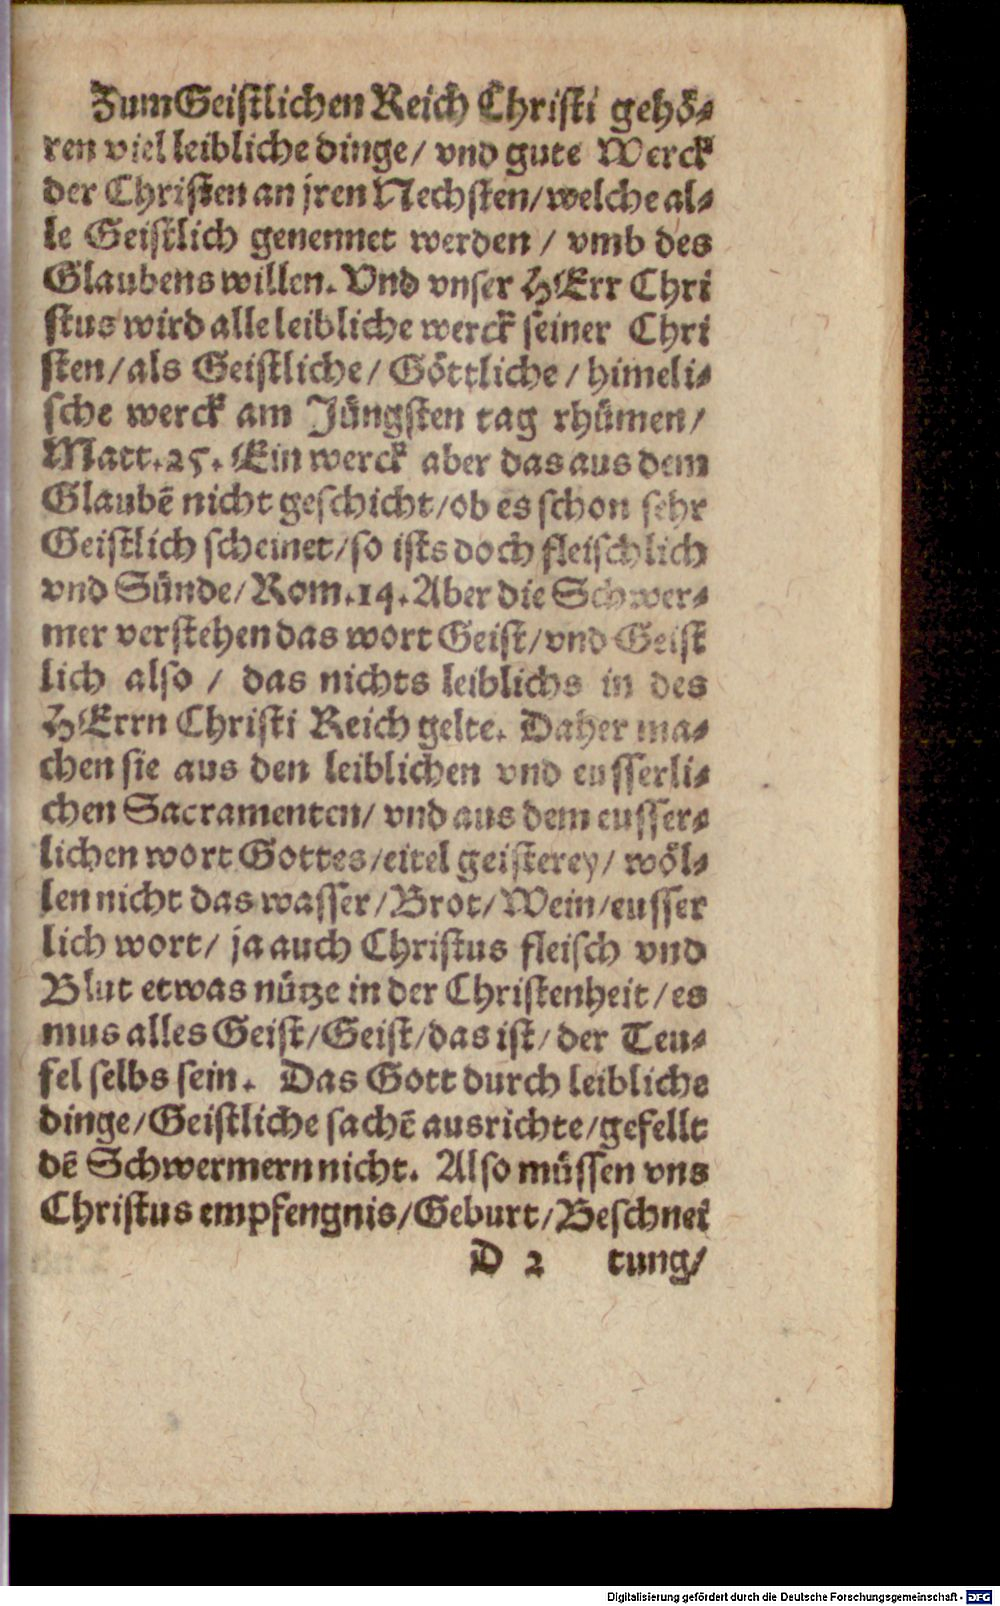 Zum Geistlichen Reich Christi gehö-
ren viel leibliche dinge/ vnd gute Werck
der Christen an jren Nechsten/ welche al-
le Geistlich genennet werden / vmb des
Glaubens willen. Vnd vnser HErr Chri
stus wird alle leibliche werck seiner Chri
sten/ als Geistliche/ Göttliche / himeli-
sche werck am Jüngsten tag rhümen/
Matt.25. Ein werck aber das aus dem
Glaubē nicht geschicht/ ob es schon sehr
Geistlich scheinet/ so ists doch fleischlich
vnd Sünde/ Rom.14. Aber die Schwer-
mer verstehen das wort Geist/ vnd Geist
lich also / das nichts leiblichs in des
HErrn Christi Reich gelte. Daher ma-
chen sie aus den leiblichen vnd eusserli-
chen Sacramenten/ vnd aus dem eusser-
lichen wort Gottes/ eitel geisterey/ wöl-
len nicht das wasser/ Brot/ Wein/ eusser
lich wort/ ja auch Christus fleisch vnd
Blut etwas nütze in der Christenheit/ es
mus alles Geist/ Geist/ das ist/ der Teu-
fel selbs sein. Das Gott durch leibliche
dinge/ Geistliche sachē ausrichte/ gefellt
dē Schwermern nicht. Also müssen vns
Christus empfengnis/ Geburt/ Beschnei
D 2 tung/
Digitalisierung gefördert durch die Deutsche Forschungsgemeinschaft - DFG